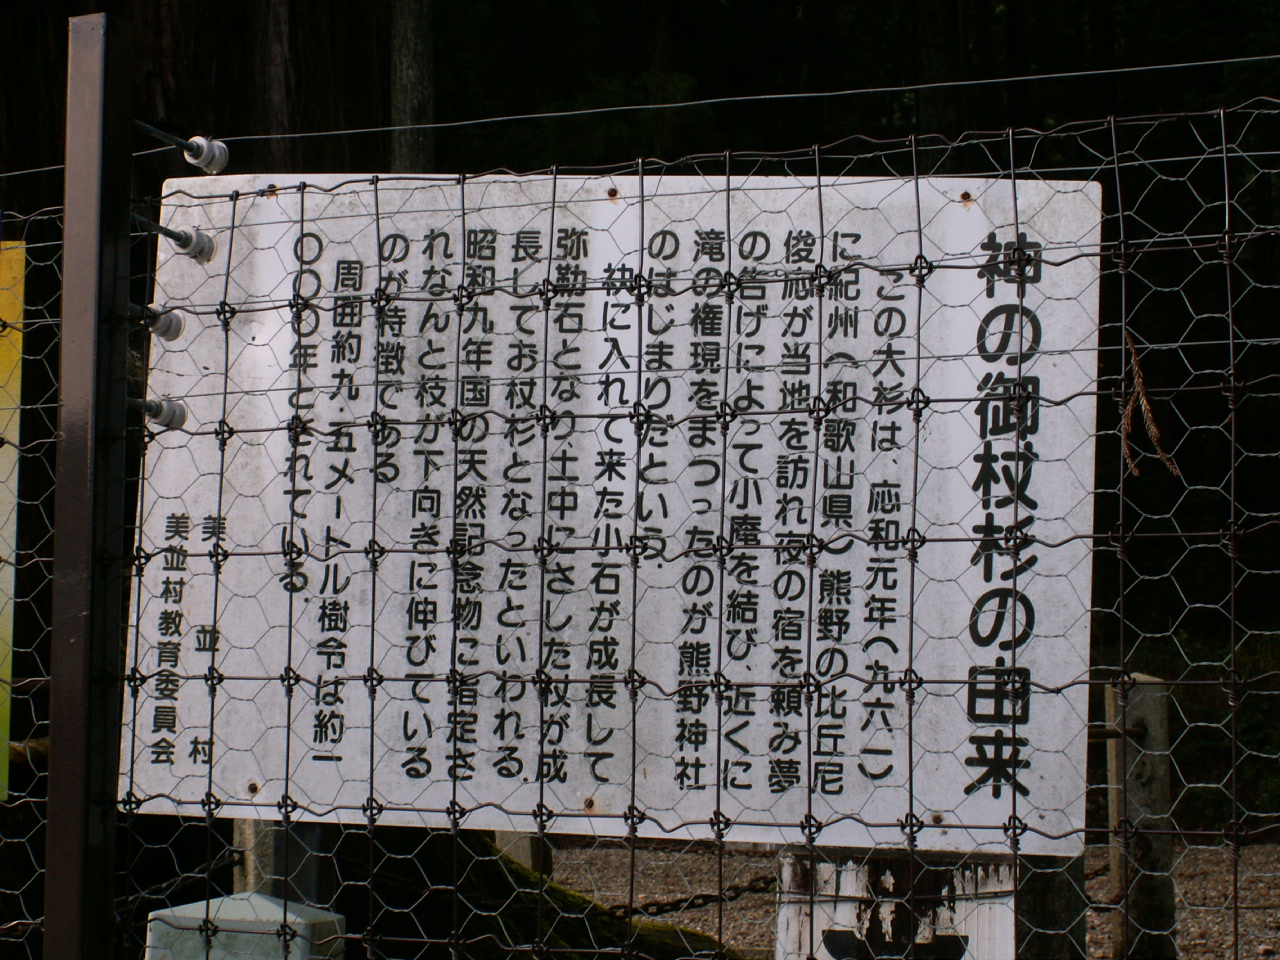 神の御杖杉の由来
この大杉は、応和元年(九六一)
に紀州(和歌山県)熊野の比丘尼
俊応が当地を訪れ夜の宿を頼み夢
の告げによって小庵を結び、近くに
滝の権現をまつったのが熊野神社
のはじまりだという。
袂に入れて来た小石が成長して
弥勒石となり、土中にさした杖が成
長してお杖杉となったといわれる。
昭和九年国の天然記念物に指定さ
れなんと枝が下向きに伸びている
のが特徴である
周囲約九.五メートル樹令は約一
〇〇〇年とされている
美並村
美並村教育委員会